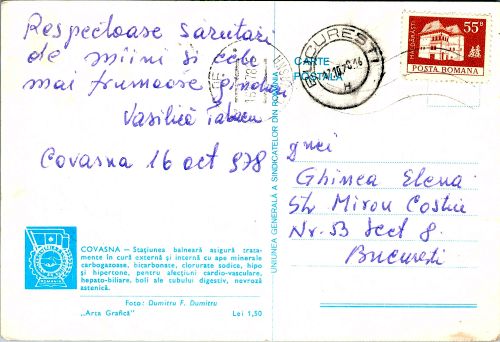 Respectoase sărutări
de mîini și cele
mai frumoase gînduri
Vasilica
Covasna 16 oct 978
COVASNA — Stațiunea balneară asigură trata-
mente în cură externă și internă cu ape minerale
carbogazoase, bicarbonate, clorurate sodice, hipo
și hipertone, pentru afecțiuni cardio-vasculare,
hepato-biliare, boli ale tubului digestiv, nevroză
astenică.
Foto: Dumitru F. Dumitru
„Arta Grafică”
Lei 1,50
UNIUNEA GENERALĂ A SINDICATELOR DIN ROMÂNIA
CARTE
POȘTALĂ
BUCUREȘTI
55B
MĂLDĂRĂȘTI
POSTA ROMANA
Ghinea Elena
Str Miron Costin
Nr. 53 Sect 8.
București